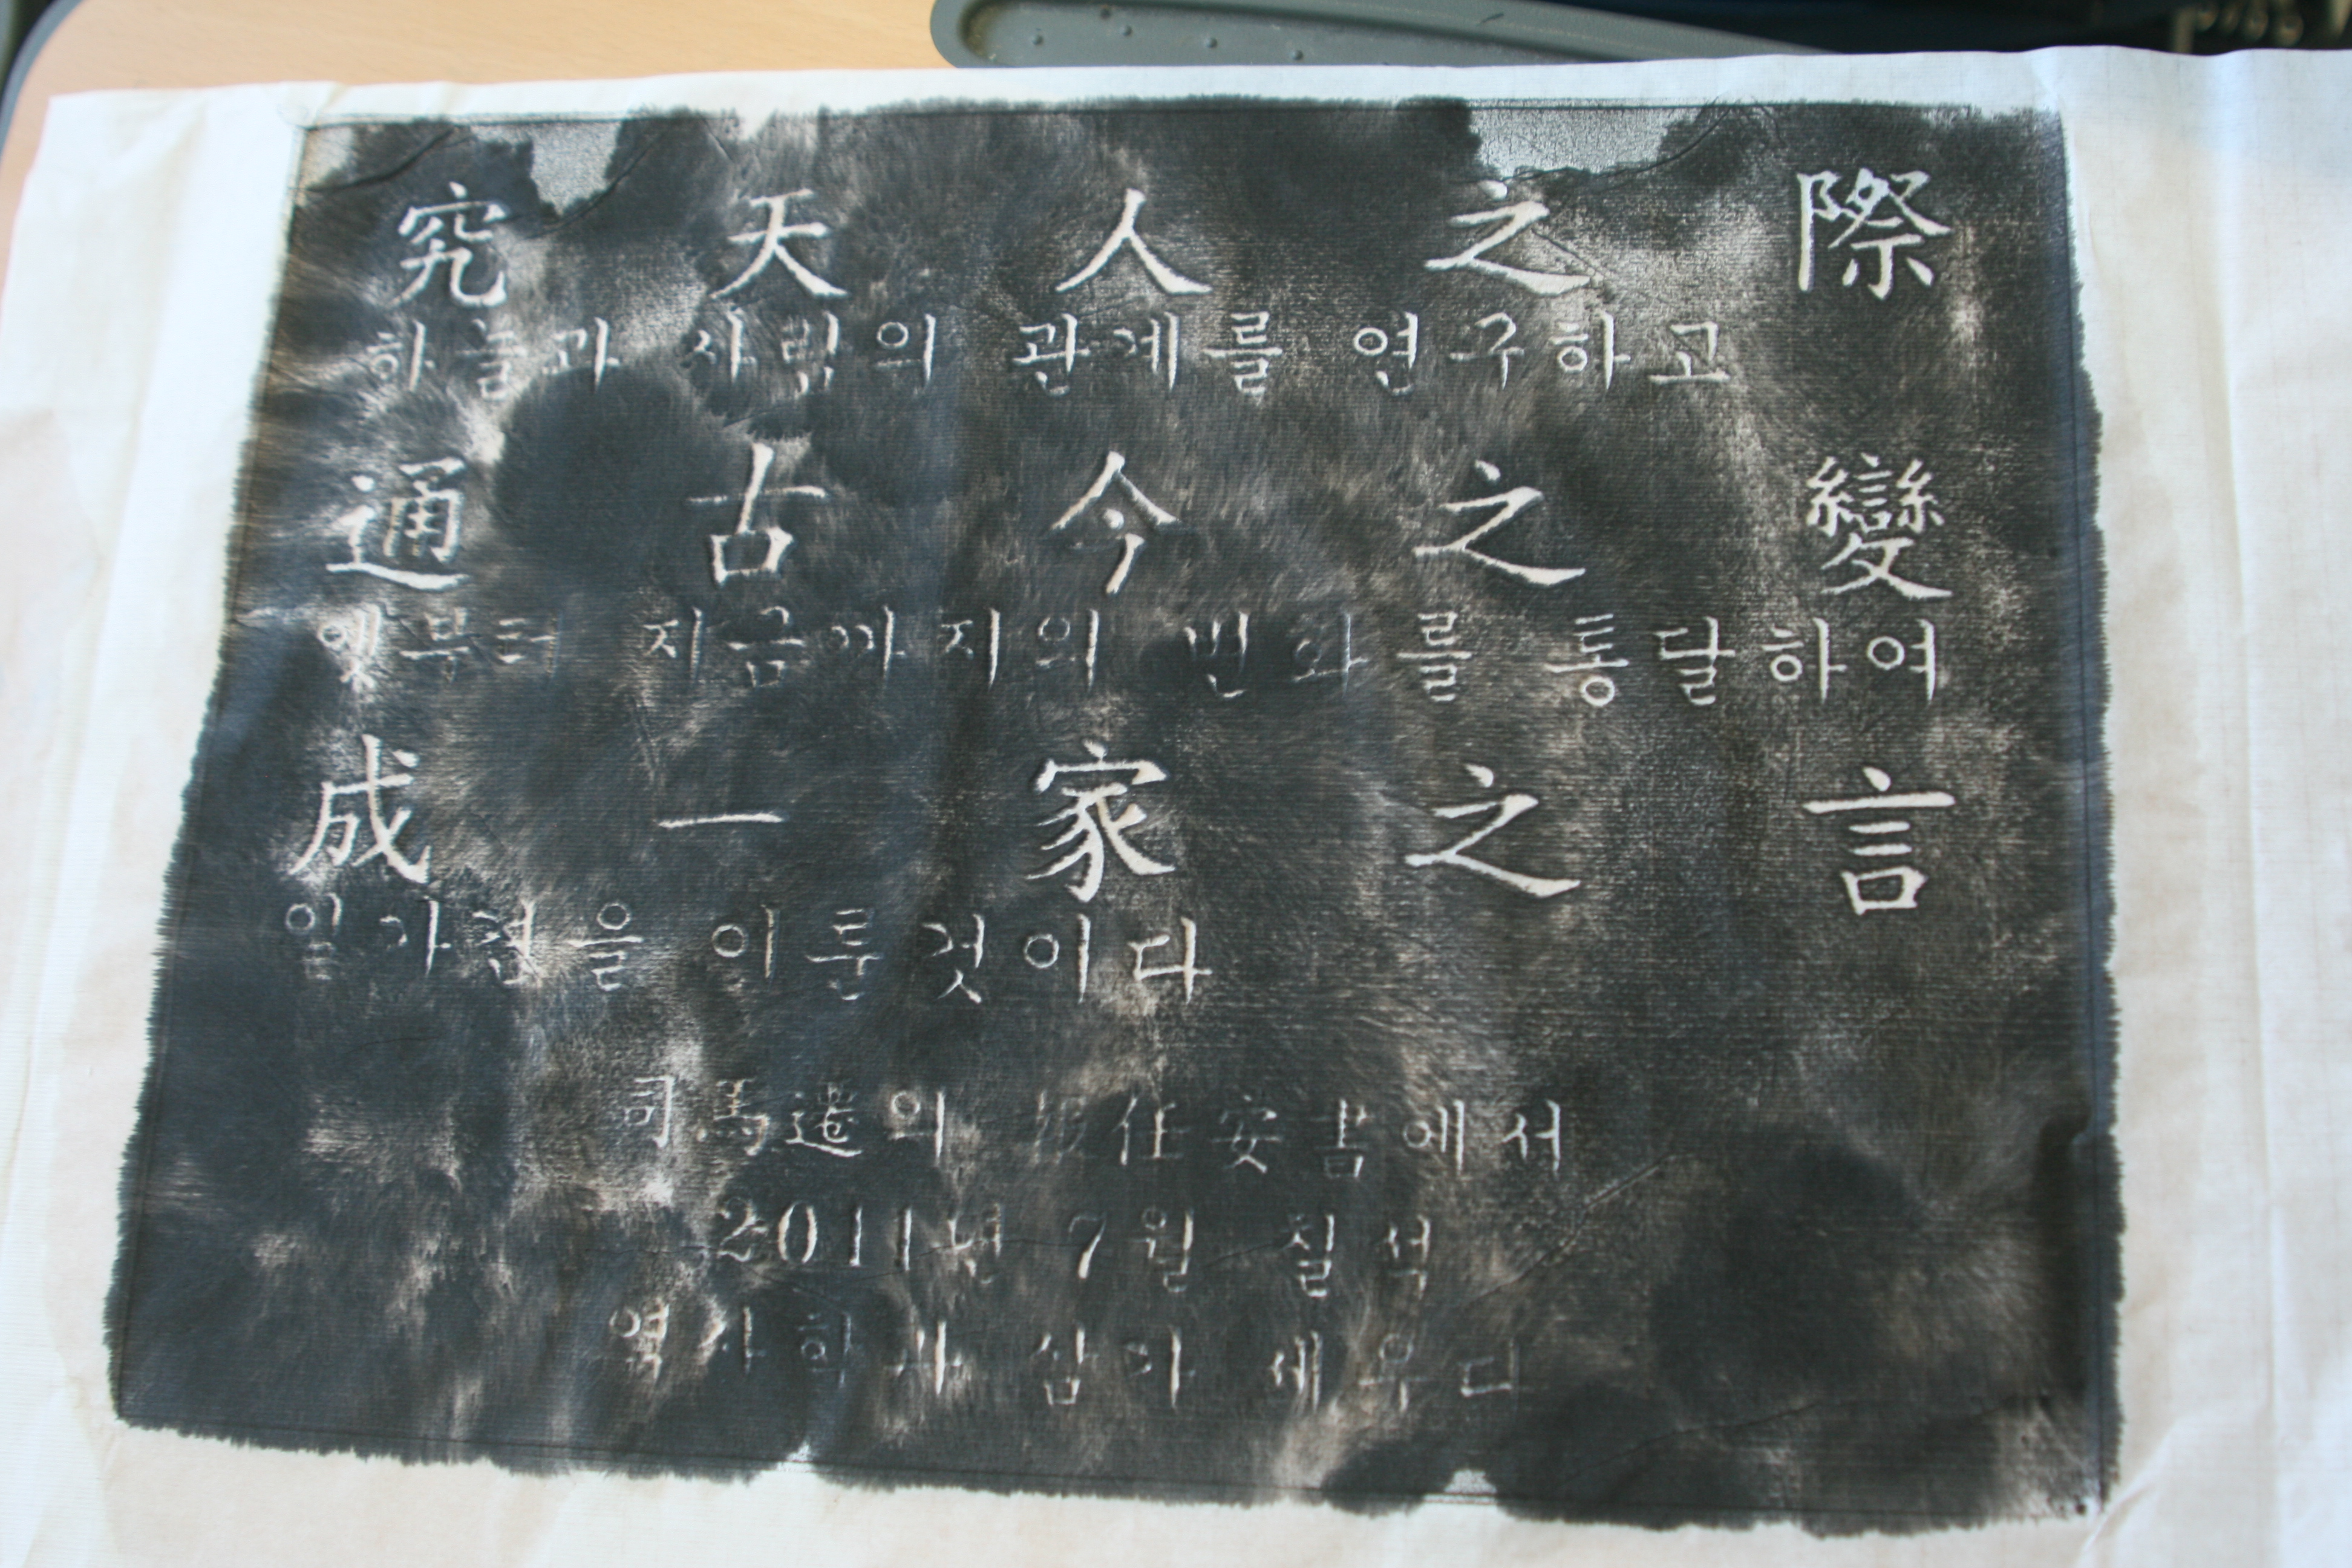 究 天 人 之 際
하늘과 사람의 관계를 연구하고
通 古 今 之 變
옛부터 지금까지의 변화를 통달하여
成 一 家 之 言
일가견을 이룬것이다
司馬遷의 報任安書에서
2011년 7월 칠석
역사학사 삼가 세우다